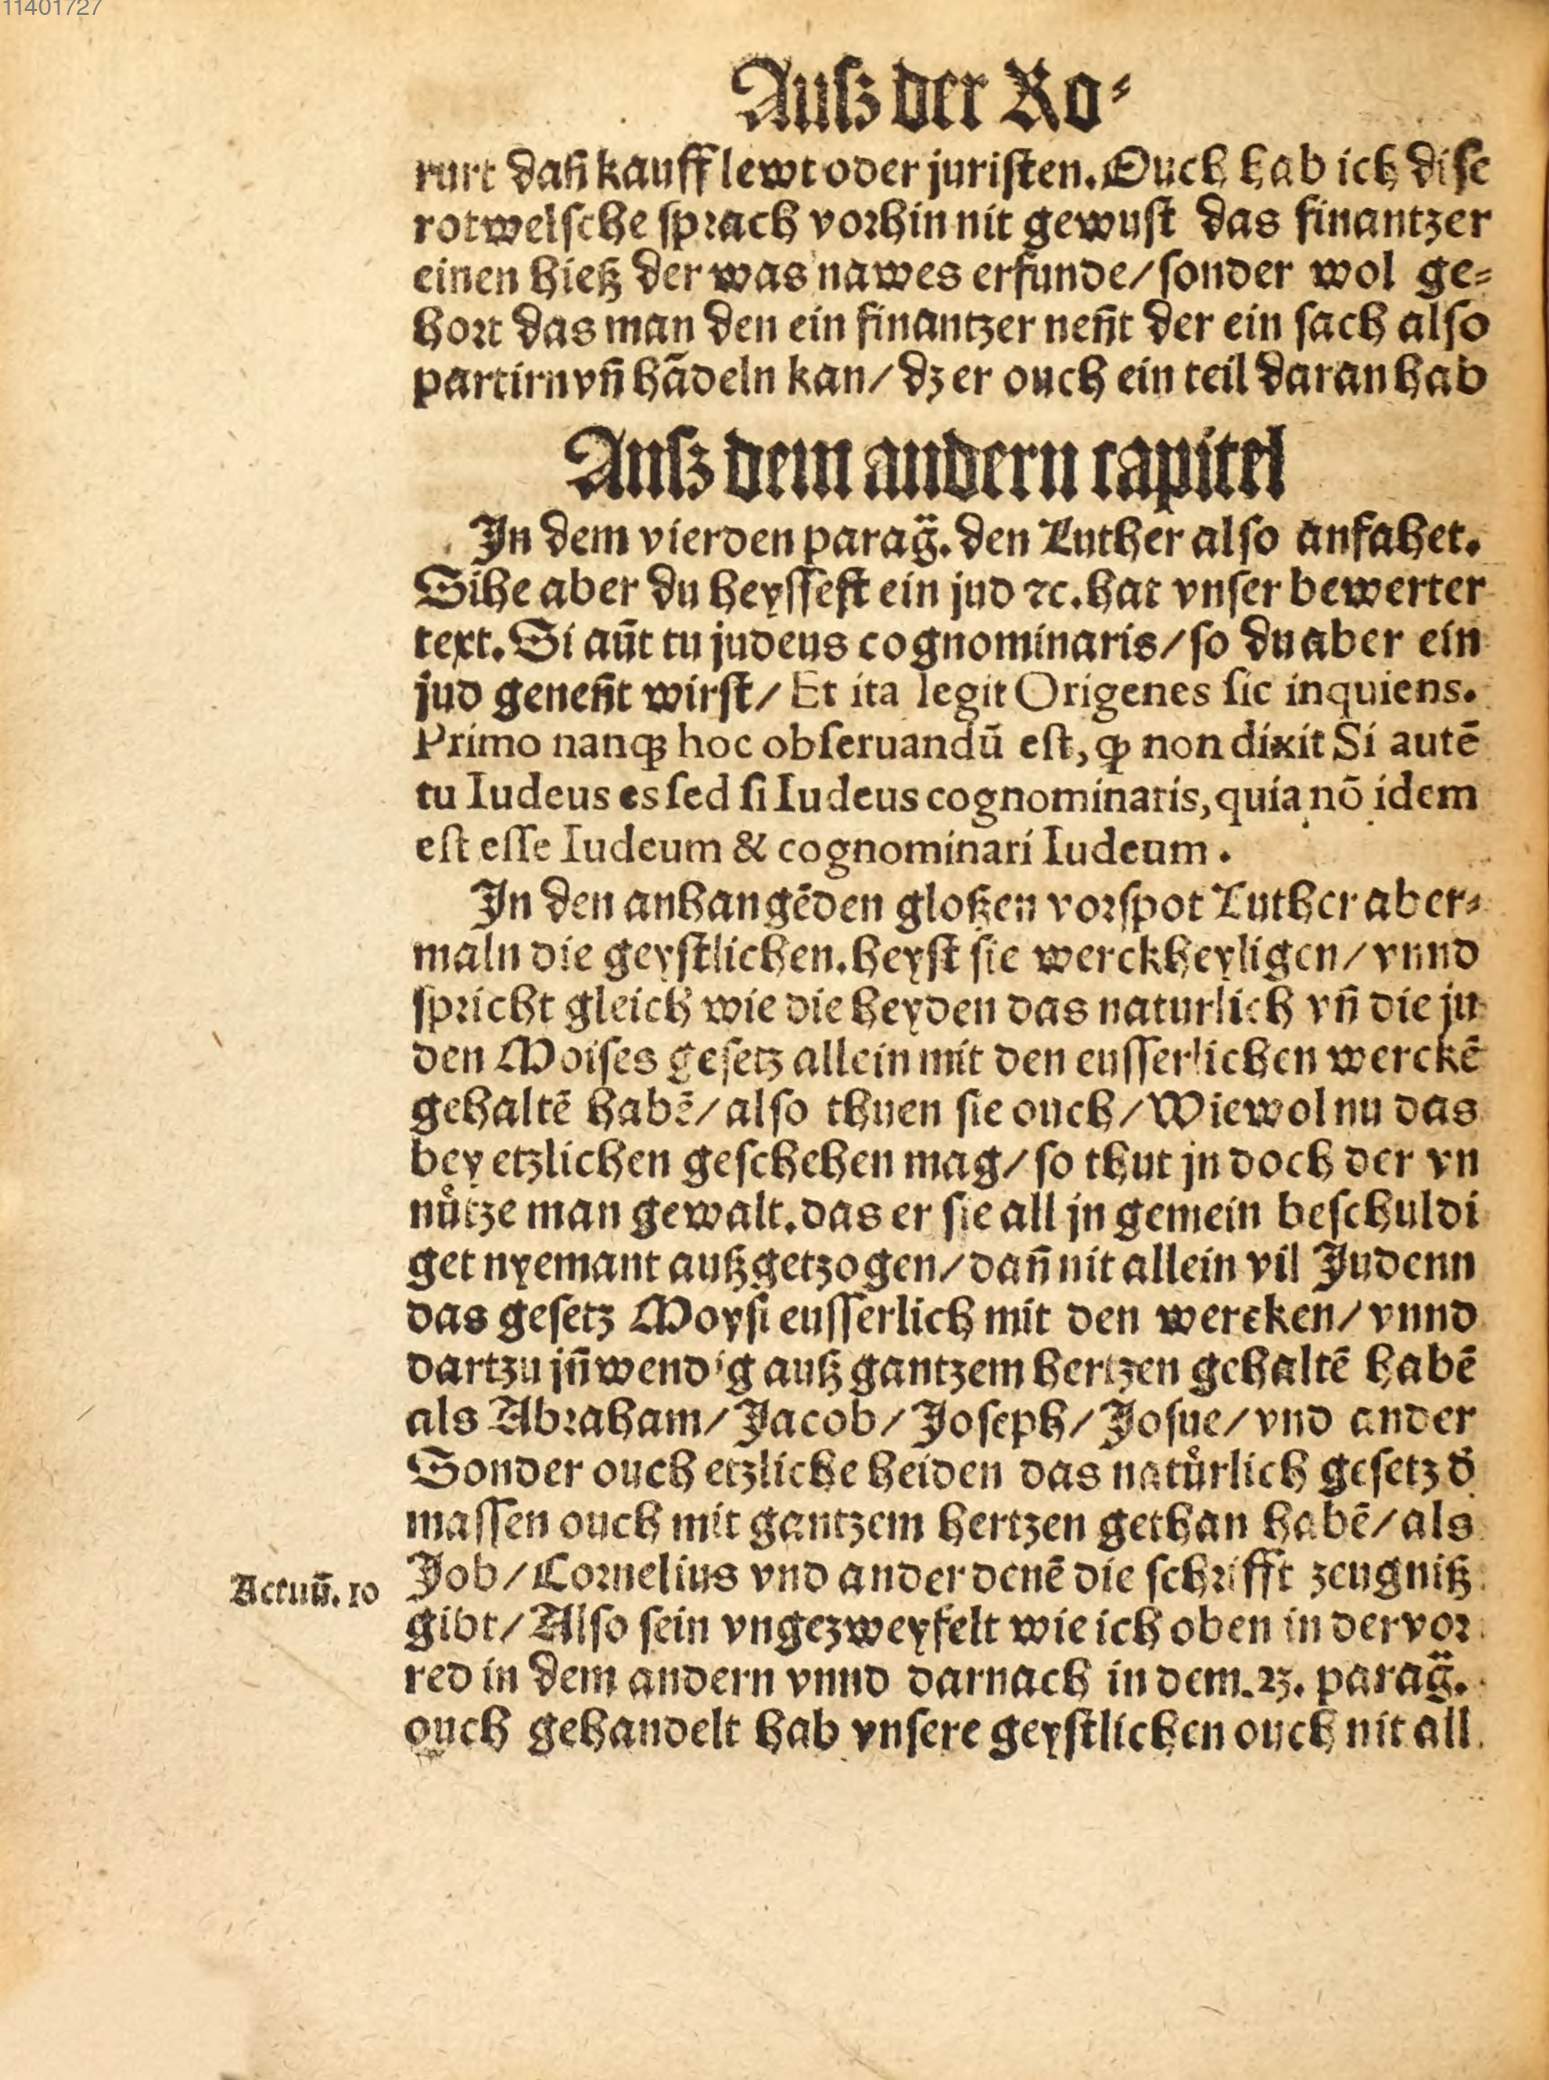 11401727
Auſz der Ro⸗
rurt dañ kauff lewt oder juriſten. Ouch hab ich diſe
rotwelſche ſprach vorhin nit gewuſt das finantzer
einen hieß der was nawes erfunde/ſonder wol ge⸗
hort das man den ein finantzer neñt der ein ſach alſo
partirn vñ hãdeln kan/dz er ouch ein teil daran hab
Auſz dem andern capitel
In dem vierden parag̈. den Luther alſo anfahet.
Sihe aber du heyſſeſt ein jud ⁊c. hat vnſer bewerter
text. Si aūt tu judeus cognominaris/ſo du aber ein
jud geneñt wirſt/ Et ita legit Origenes ſic inquiens.
Primo nanqꝫ hoc obſeruandū eſt, ꝙ non dixit Si autē
tu Iudeus es ſed ſi Iudeus cognominaris, quia nō idem
eſt eſſe Iudeum & cognominari Iudeum.
In den anhangēden gloßen vorſpot Luther aber⸗
maln die geyſtlichen. heyſt ſie werckheyligen/vnnd
ſpricht gleich wie die heyden das naturlich vñ die ju
den Moiſes geſetz allein mit den euſſerlichen werckē
gehaltē habē/alſo thuen ſie ouch/Wiewol nu das
bey etzlichen geſchehen mag/ſo thut jn doch der vn
nůtze man gewalt. das er ſie all jn gemein beſchuldi
get nyemant außgetzogen/dañ nit allein vil Judenn
das geſetz Moyſi euſſerlich mit den wercken/vnnd
dartzu jñwendig auß gantzem hertzen gehaltē habē
als Abraham/Jacob/Joſeph/Joſue/vnd ander
Sonder ouch etzliche heiden das natůrlich geſetz d̕
maſſen ouch mit gantzem hertzen gethan habē/als
Actuū. 10
Job/Cornelius vnd ander denē die ſchrifft zeugniß
gibt/Alſo ſein vngezweyfelt wie ich oben in der vor
red in dem andern vnnd darnach in dem. 23. parag̈.
ouch gehandelt hab vnſere geyſtlichen ouch nit all